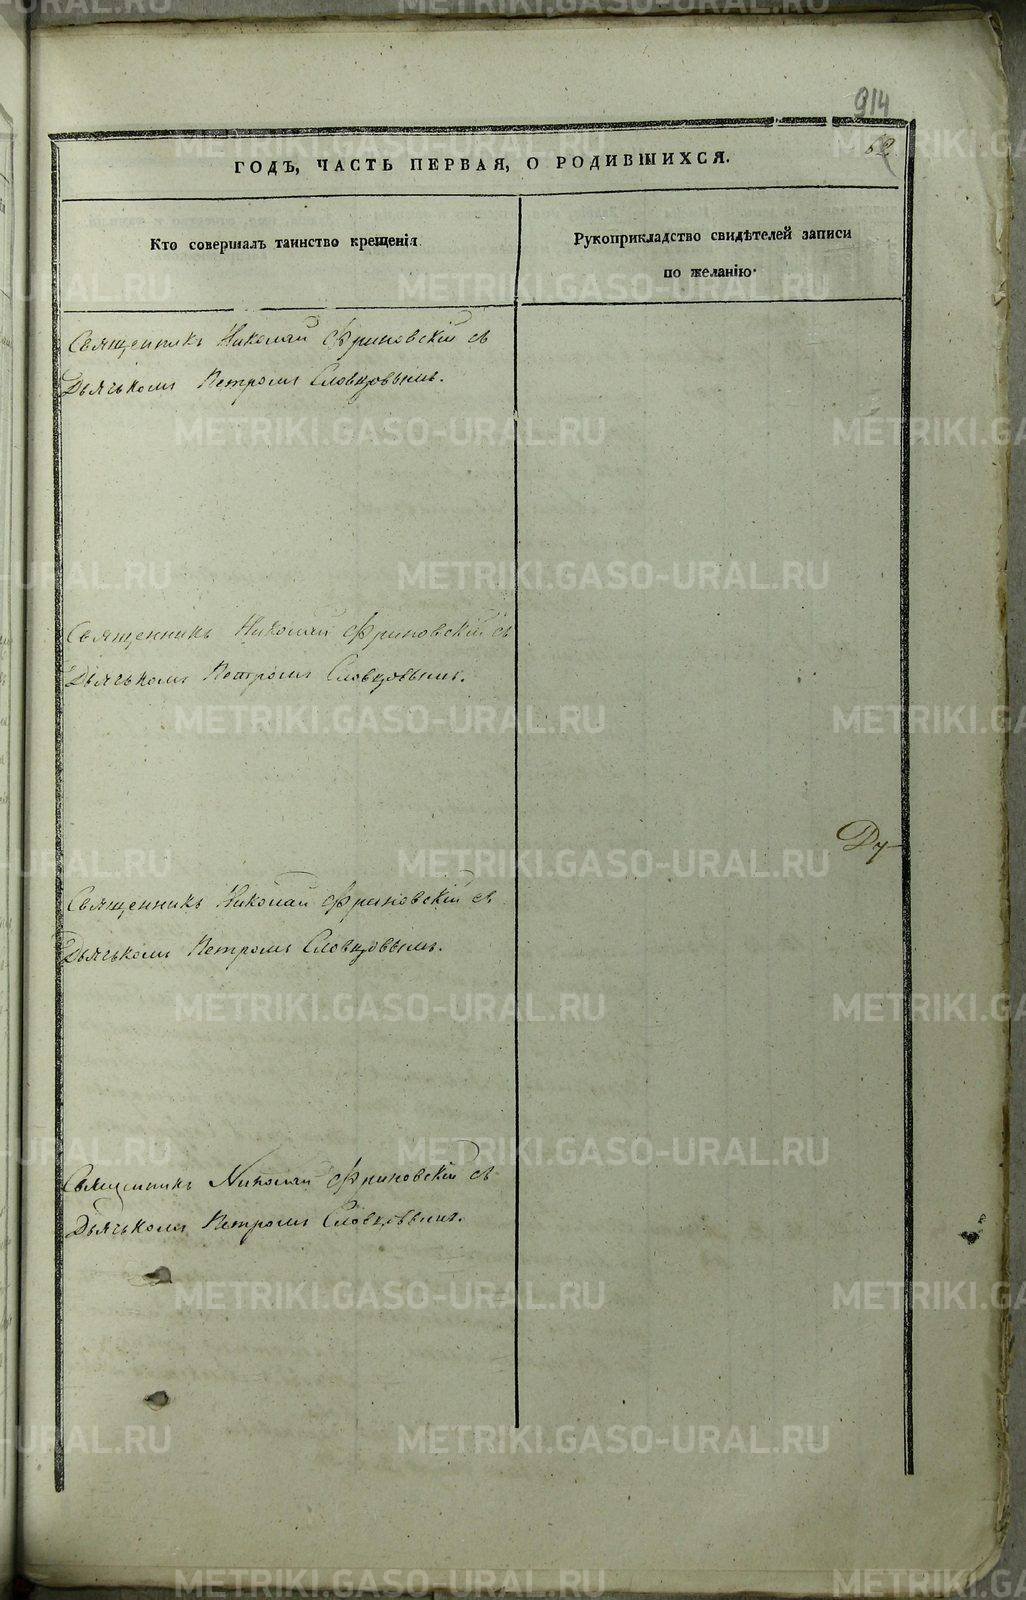 914
62
ГОДЪ, ЧАСТЬ ПЕРВАЯ, О РОДИВШИХСЯ.
Кто совершалъ таинство крещенія
Рукоприкладство свидѣтелей записи
по желанію.
Священникъ Николай Фриновскій съ
Дьячькомъ Петромъ Словцовымъ.
Священникъ Николай Фриновскій съ
Дьячькомъ Петромъ Словцовымъ.
Ду-
Священникъ Николай Фриновскій съ
Дьячькомъ Петромъ Словцовымъ.
Священникъ Николай Фриновскій съ
Дьячькомъ Петромъ Словцовымъ.
METRIKI.GASO-URAL.RU